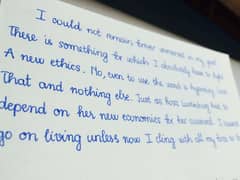 I could not remain forever immersed in my grief
There is something for which I absolutely have to fight
A new ethics. No, even to use the word is
That and nothing else. Just as Rosa Luxemburg had to
depend on her new economics for her survival. I cannot
go on living unless now I cling with all my force to